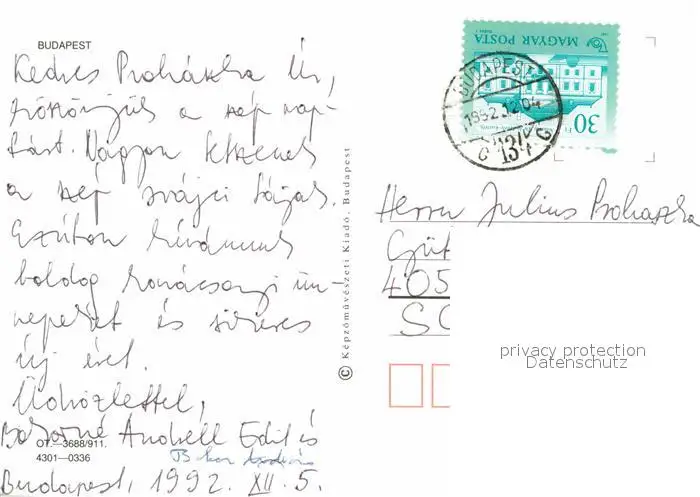 BUDAPEST
Kedves Prohászka Úr,
köszönjük a szép nap-
tárt. Nagyon tetszenek
a szép svájci tájak.
Ezúton kívánunk
boldog karácsonyi ün-
nepeket és sikeres
új évet.
Üdvözlettel,
Andrell Edit és
OT.—3688/911.
4301—0336
Budapest, 1992. XII. 5.
© Képzőművészeti Kiadó, Budapest
MAGYAR POSTA
30 Ft
BUDAPEST
1992.12.04
134
Herrn Julius Prohaszka
Güt
405
SC
privacy protection
Datenschutz